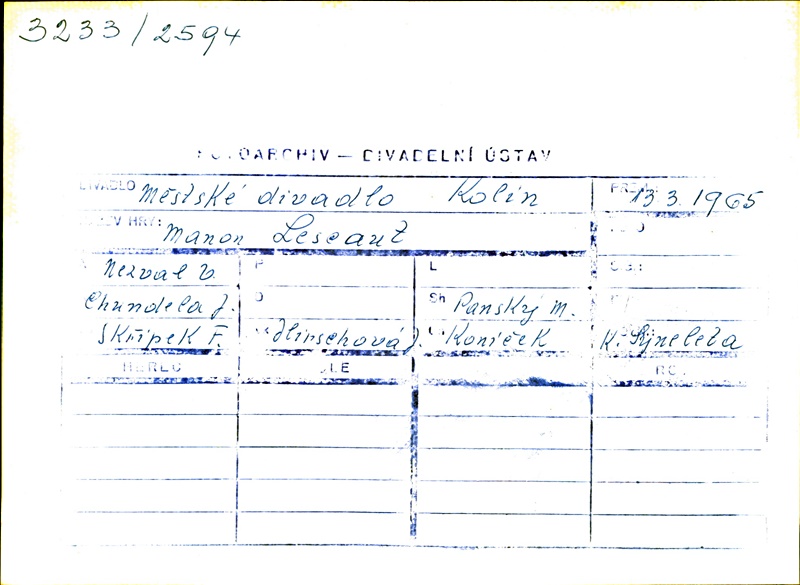 3233/2594
FOTOARCHIV — DIVADELNÍ ÚSTAV
DIVADLO Městské divadlo Kolín 13.3.1965
HRY: Manon Lescaut
Nezval V. P L
Chundela J. O Sh Panský M.
Skřipek F. Jlinschová J. Koníček K.
HEREC